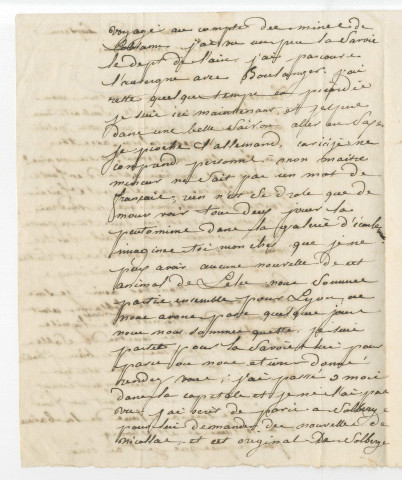 voyager au compte des mines de
j'ai vu un peu la Savoie
le dept de l'ain, j'ai parcouru
l'auvergne avec Boulanger. j'ai
resté quelque temps en picardie
je suis ici maintenant, et j'espere
dans une belle saison aller en Saxe
je pioche l'allemand, car ici je ne
comprend personne. mon maitre
mineur ne sait pas un mot de
français, rien n'est si drole que de
nous voir tous deux jouer la
pantomime dans la galerie d'
imagine toi mon cher que je ne
puis avoir aucune nouvelle de cet
animal de nous sommes
partis ensemble pour Lyon, ou
nous avons passé quelque jours
nous nous sommes quittés. je suis
partit pour la Savoie et lui pour
paris ou nous etions donné
rendez vous; j'ai passé 2 mois
dans la capitale et je ne l'ai pas
vu. j'ai ecrit de paris a Solberge
pour lui demander des nouvelles de
nicollas, et cet original De Solberge